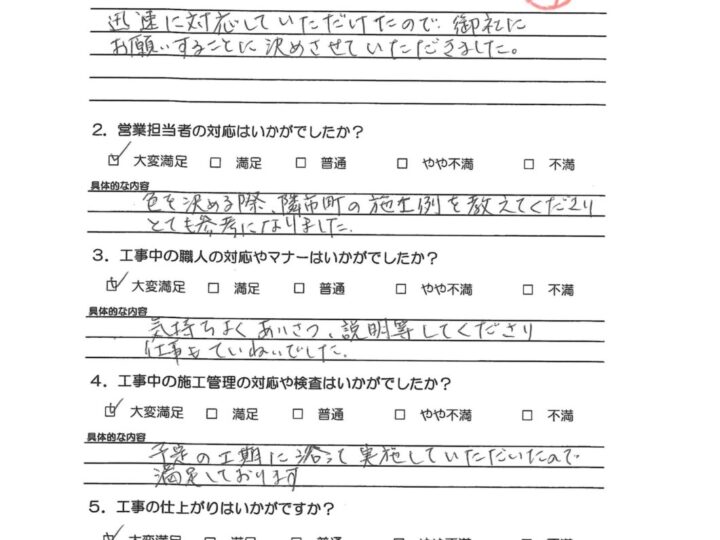 迅速に対応していただけたので、御社に
お願いすることに決めさせていただきました。
2．営業担当者の対応はいかがでしたか？
☑ 大変満足 □ 満足 □ 普通 □ やや不満 □ 不満
具体的な内容
色を決める際、隣市町の施工例を教えてくださり
とても参考になりました。
3．工事中の職人の対応やマナーはいかがでしたか？
☑ 大変満足 □ 満足 □ 普通 □ やや不満 □ 不満
具体的な内容
気持ちよくあいさつ、説明等してくださり
仕事もていねいでした。
4．工事中の施工管理の対応や検査はいかがでしたか？
☑ 大変満足 □ 満足 □ 普通 □ やや不満 □ 不満
具体的な内容
予定の工期に沿って実施していただいたので
満足しております
5．工事の仕上がりはいかがですか？
☑ 大変満足 □ 満足 □ 普通 □ やや不満 □ 不満